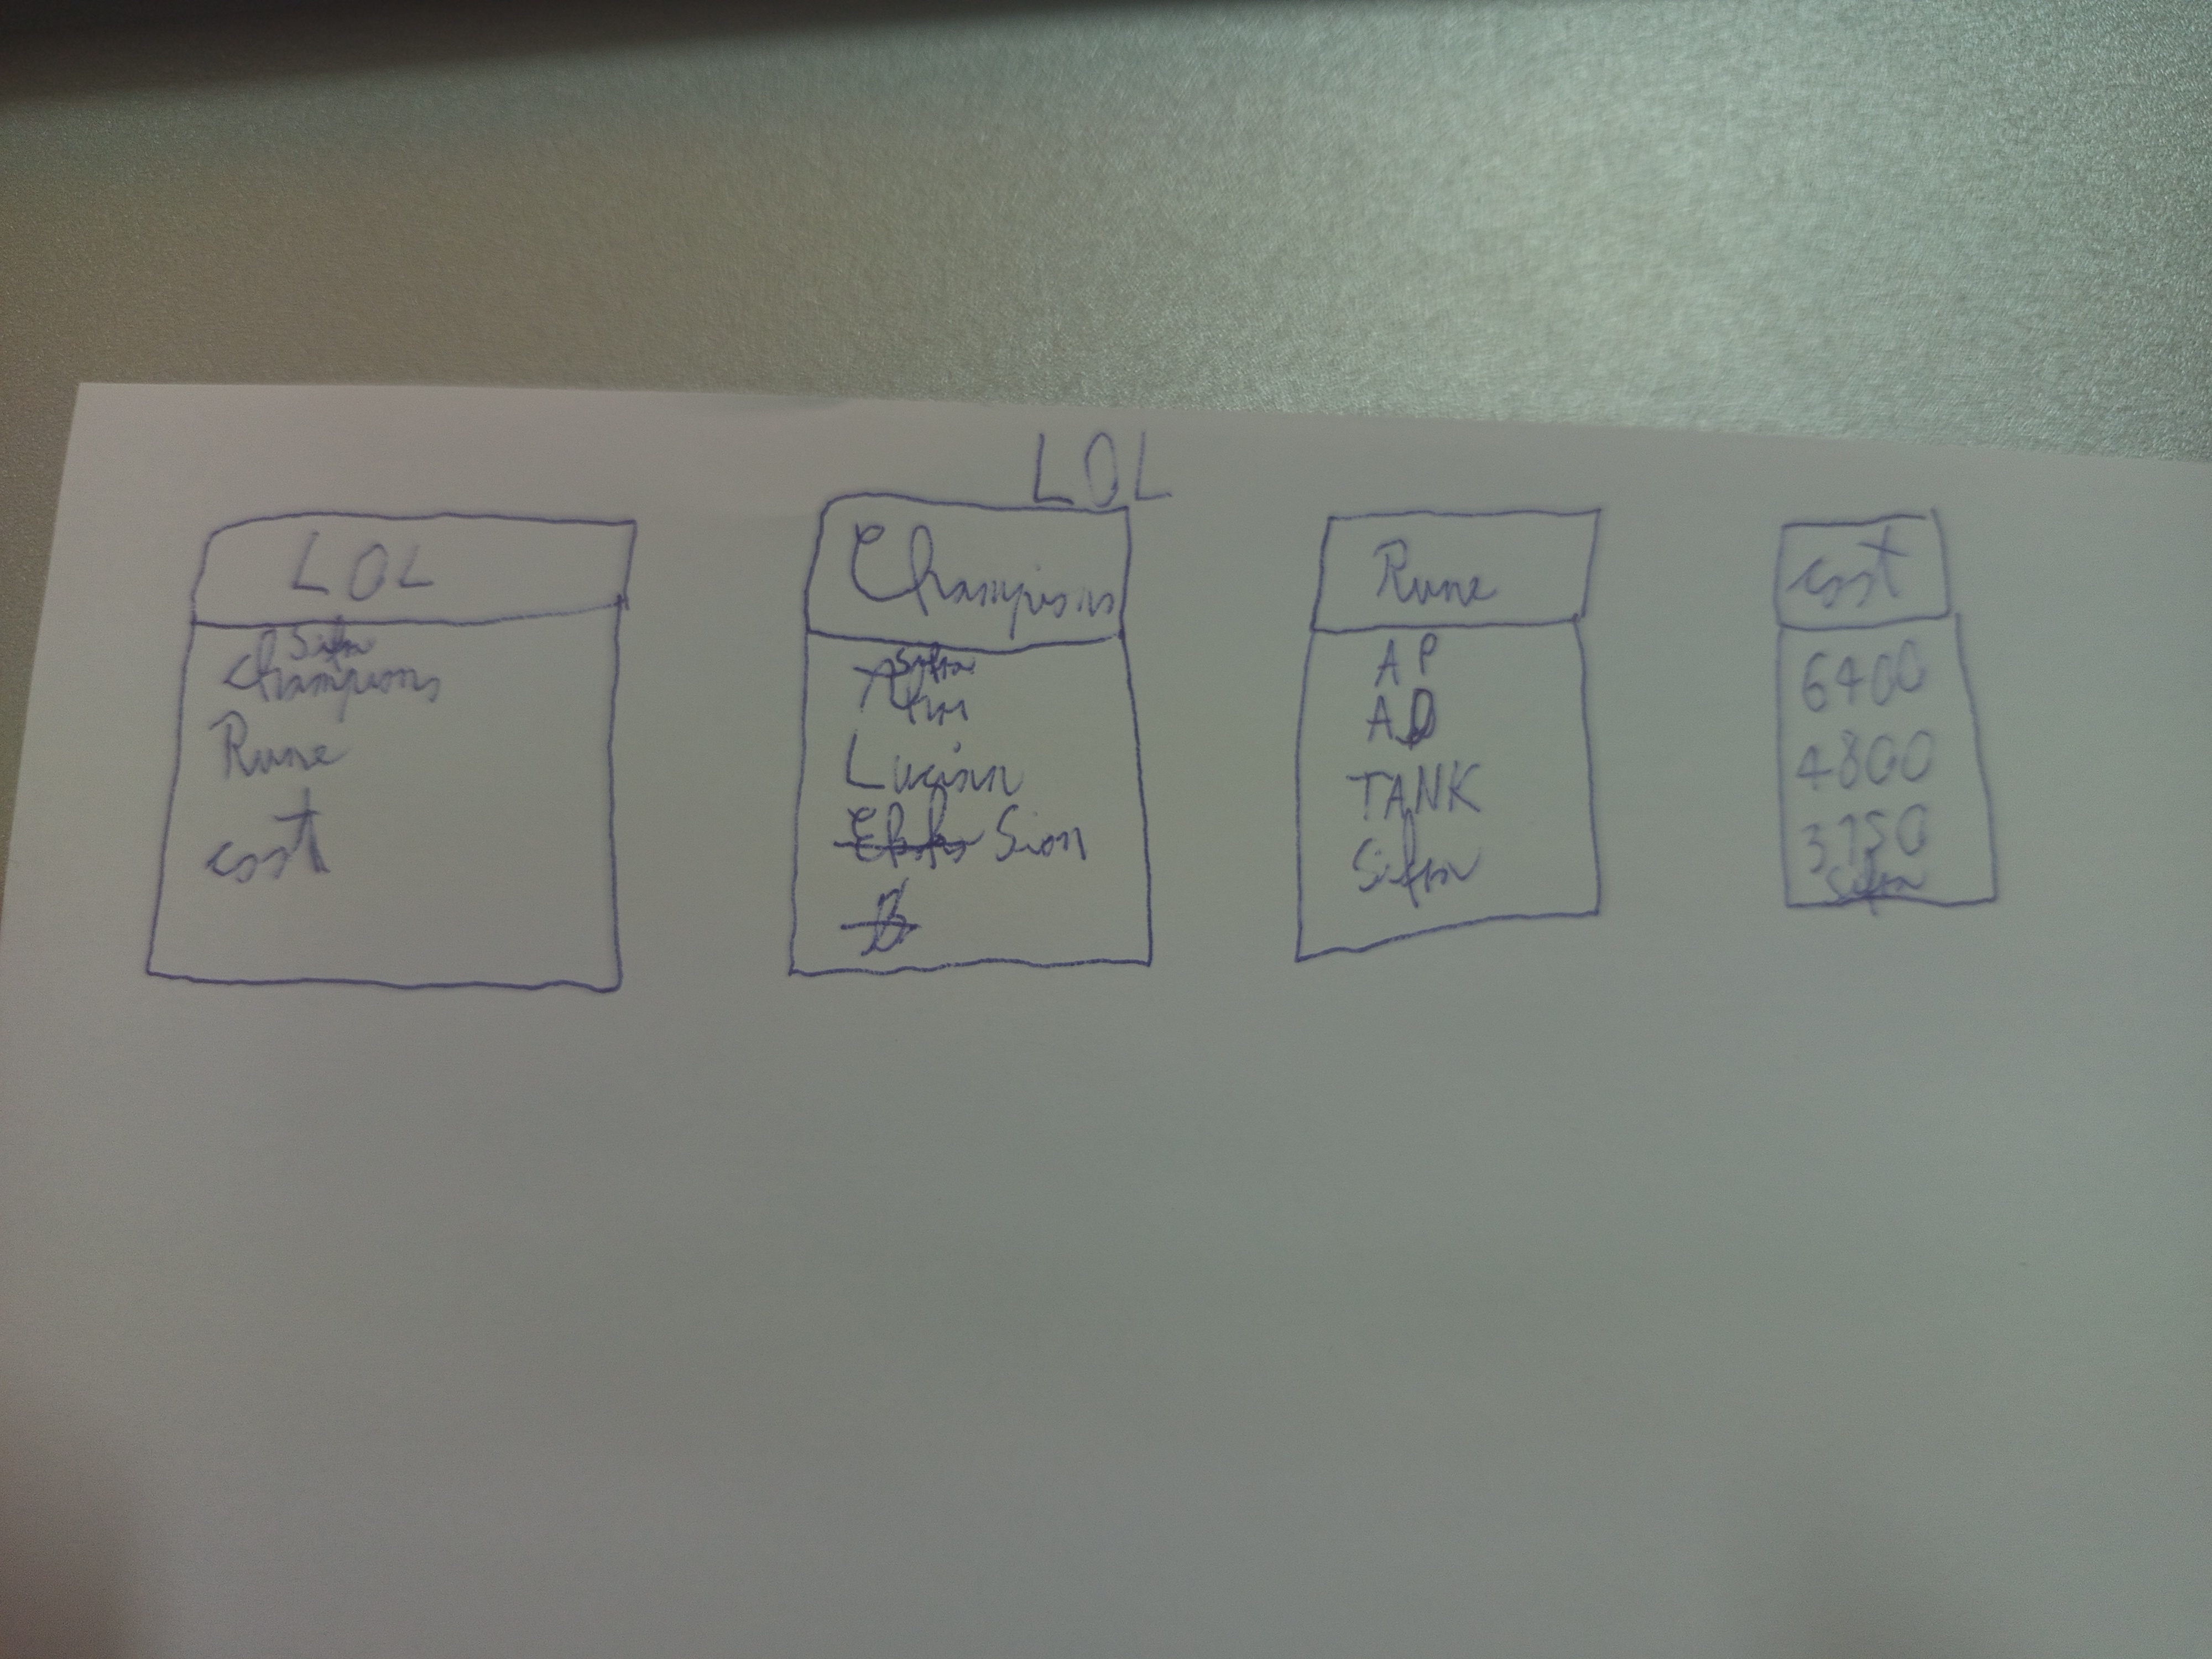 LOL
LOL
Sifra
Champions
Rune
cost
Champions
Sifra
Lucian
Sion
Rune
AP
AD
TANK
Sifra
cost
6400
4800
3150
Sifra